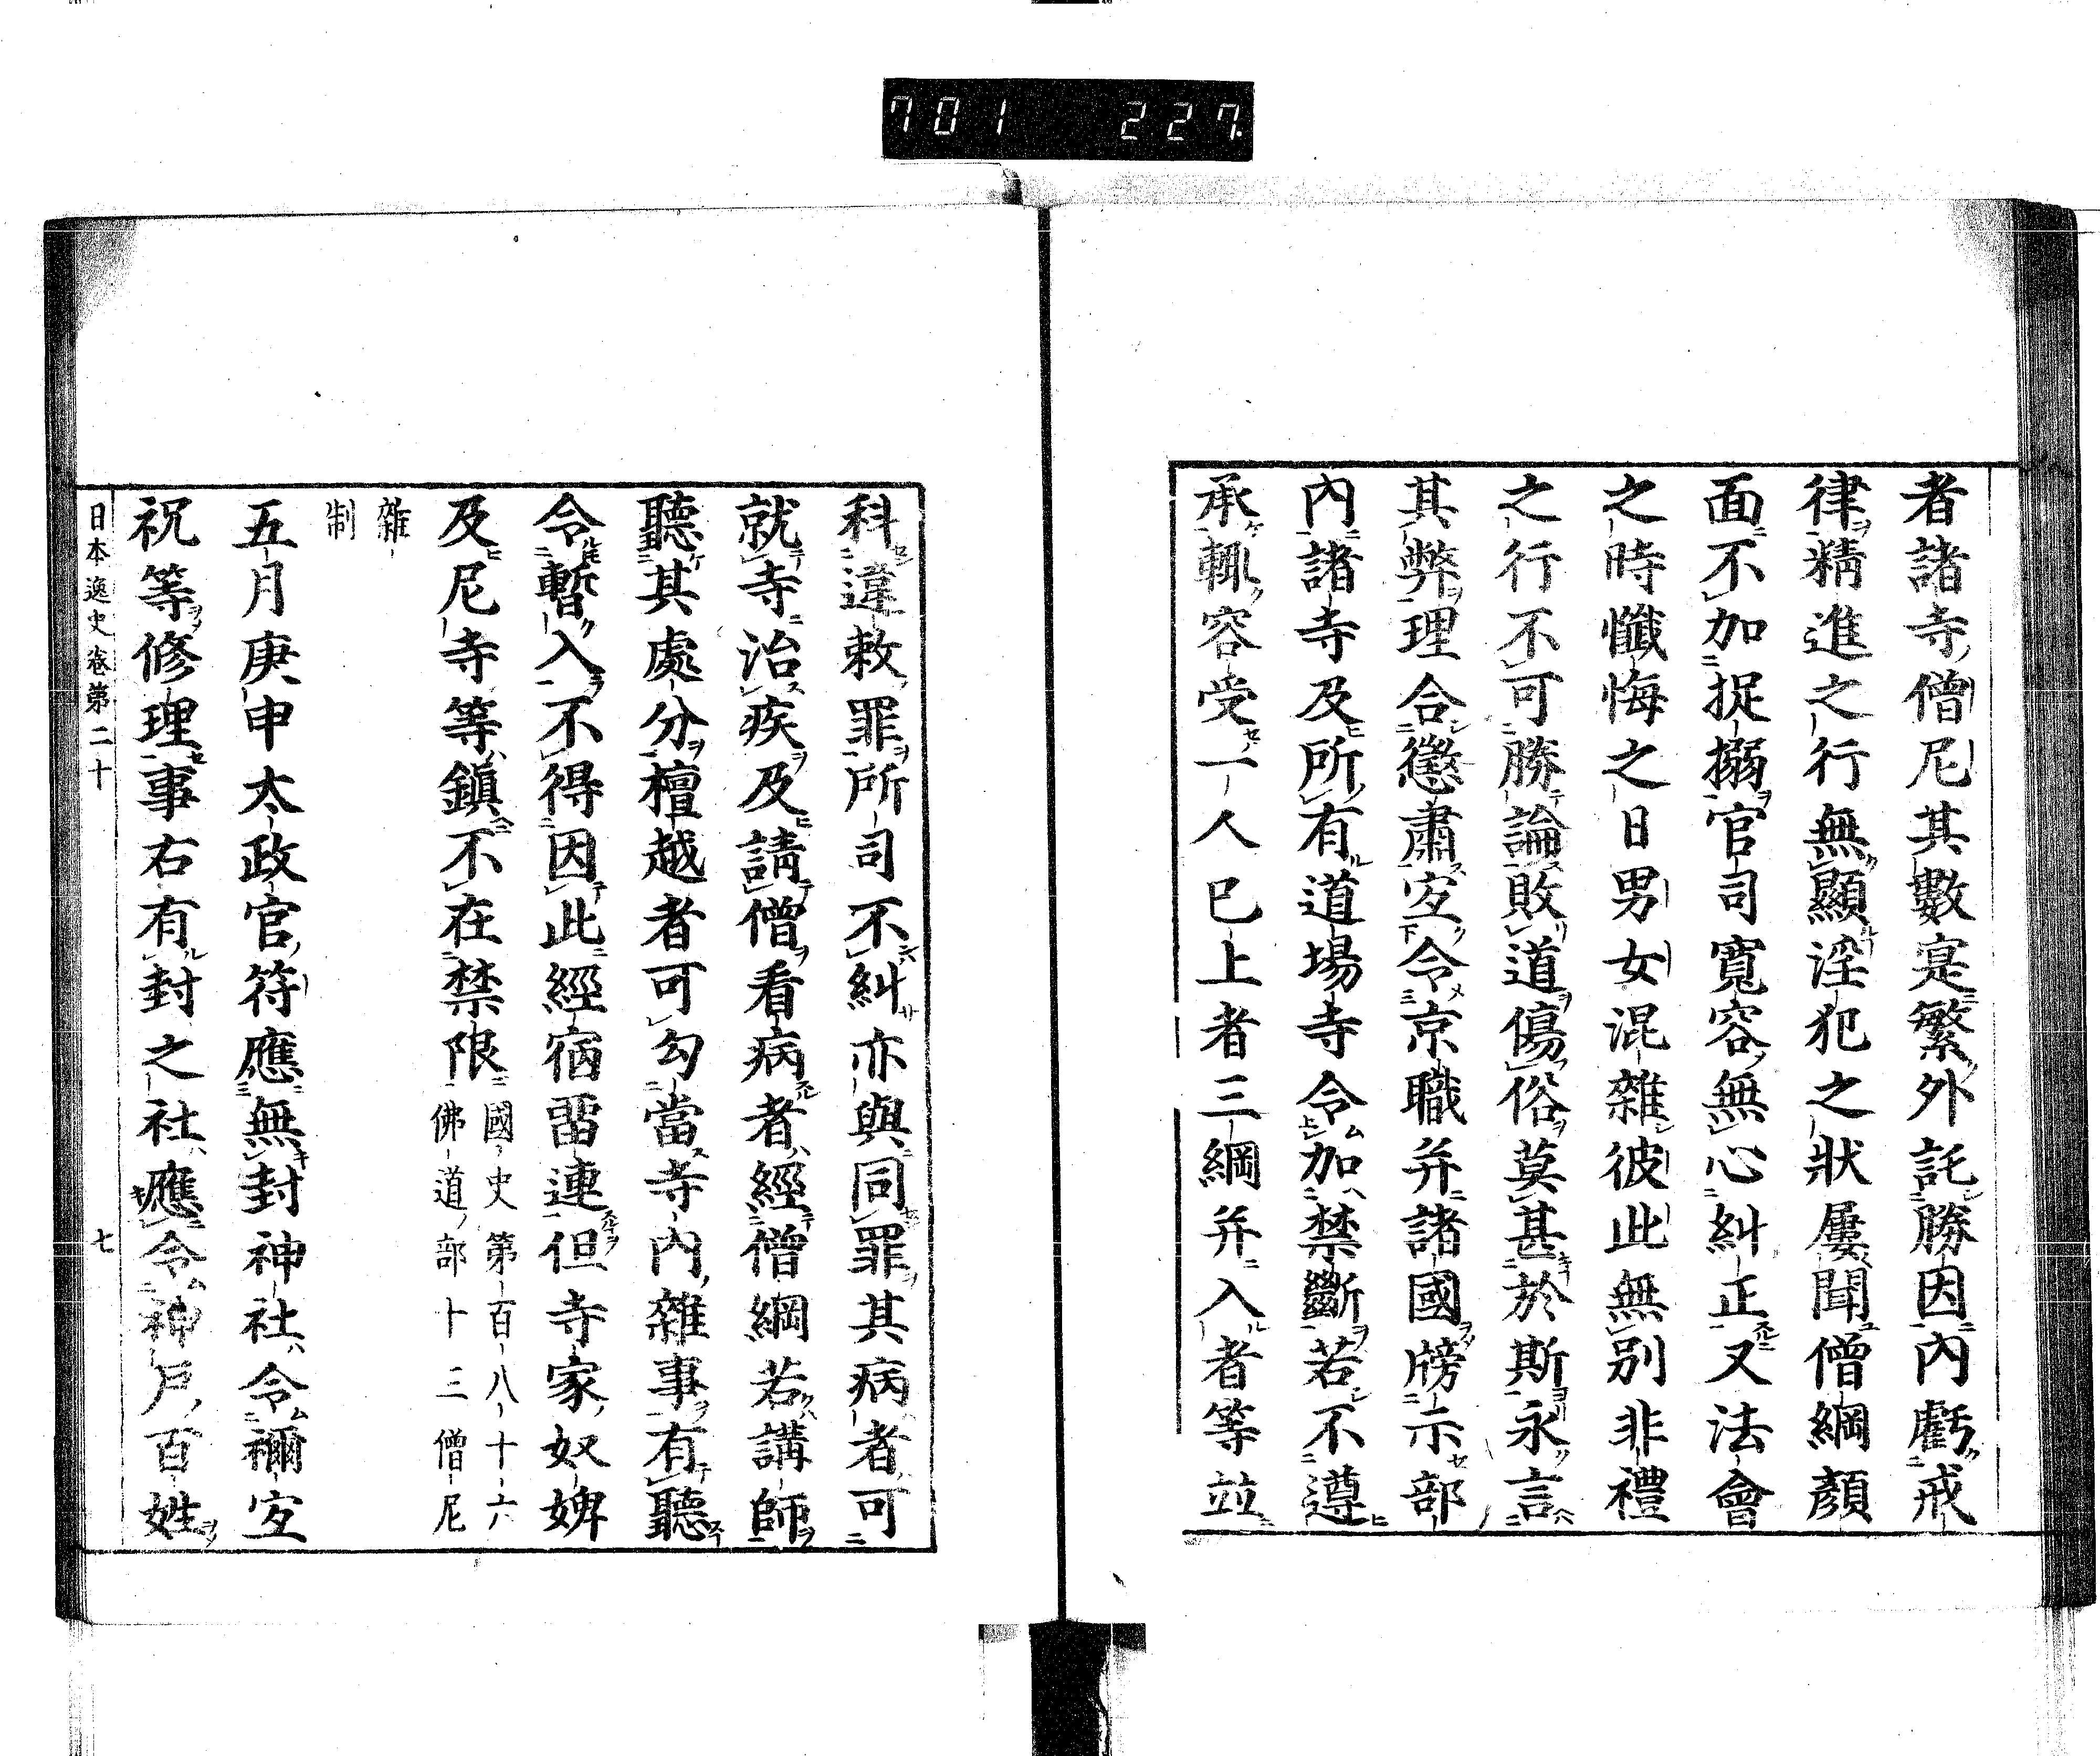 701 227
者諸寺僧尼其數寔繁外託勝因內虧戒
律精進之行無顯淫犯之狀屢聞僧綱顏
面不加捉搦官司寬容無心糾正又法會
之時懺悔之日男女混雜彼此無別非禮
之行不可勝論敗道傷俗莫甚於斯永言
其弊理合懲肅宜令京職并諸國牓示部
內諸寺及所有道場寺令加禁斷若不遵
承輙容受一人巳上者三綱并入者等並
科違敕罪所司不糾亦與同罪其病者可
就寺治疾及請僧看病者經僧綱若講師
聽其處分檀越者可勾當寺內雜事有聽
令暫入不得因此經宿畱連但寺家奴婢
及尼寺等鎭不在禁限國史第百八十六
佛道部十三僧尼
雜
制
五月庚申太政官符應無封神社令禰宜
祝等修理事右有封之社應令神戶百姓
日本逸史卷第二十 七